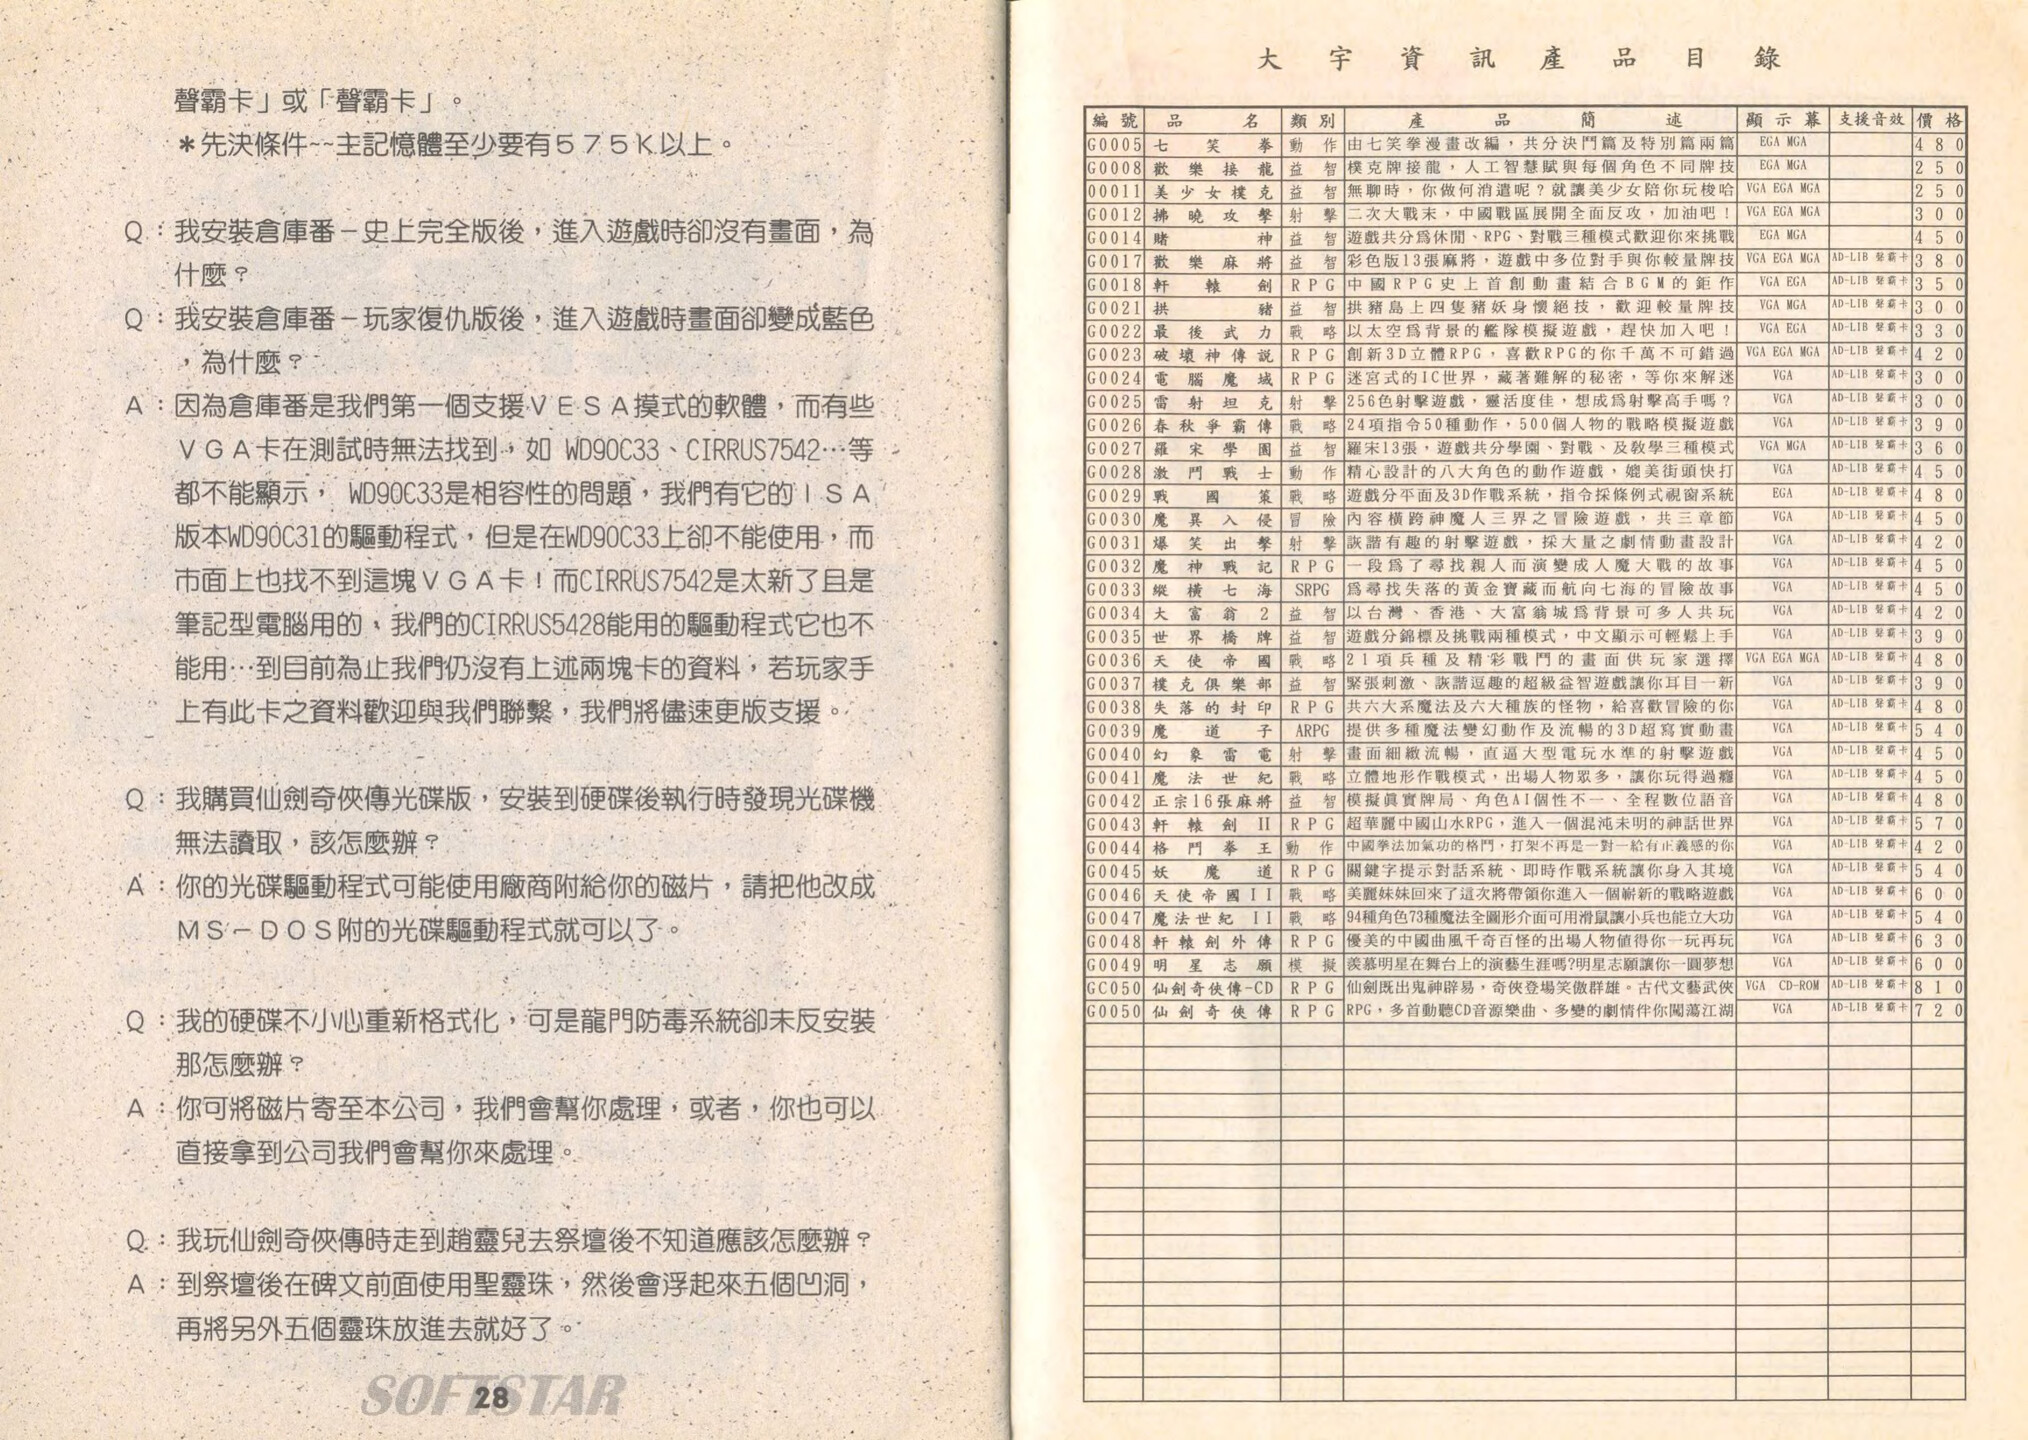 聲霸卡」或「聲霸卡」。
＊先決條件~~主記憶體至少要有５７５Ｋ以上。
Ｑ：我安裝倉庫番－史上完全版後，進入遊戲時卻沒有畫面，為
什麼？
Ｑ：我安裝倉庫番－玩家復仇版後，進入遊戲時畫面卻變成藍色
，為什麼？
Ａ：因為倉庫番是我們第一個支援ＶＥＳＡ摸式的軟體，而有些
ＶＧＡ卡在測試時無法找到，如 WD90C33、CIRRUS7542…等
都不能顯示， WD90C33是相容性的問題，我們有它的ＩＳＡ
版本WD90C31的驅動程式，但是在WD90C33上卻不能使用，而
市面上也找不到這塊ＶＧＡ卡！而CIRRUS7542是太新了且是
筆記型電腦用的、我們的CIRRUS5428能用的驅動程式它也不
能用…到目前為止我們仍沒有上述兩塊卡的資料，若玩家手
上有此卡之資料歡迎與我們聯繫，我們將儘速更版支援。
Ｑ：我購買仙劍奇俠傳光碟版，安裝到硬碟後執行時發現光碟機
無法讀取，該怎麼辦？
Ａ：你的光碟驅動程式可能使用廠商附給你的磁片，請把他改成
ＭＳ－ＤＯＳ附的光碟驅動程式就可以了。
Ｑ：我的硬碟不小心重新格式化，可是龍門防毒系統卻未反安裝
那怎麼辦？
Ａ：你可將磁片寄至本公司，我們會幫你處理，或者，你也可以
直接拿到公司我們會幫你來處理。
Ｑ：我玩仙劍奇俠傳時走到趙靈兒去祭壇後不知道應該怎麼辦？
Ａ：到祭壇後在碑文前面使用聖靈珠，然後會浮起來五個凹洞，
再將另外五個靈珠放進去就好了。
SOFTSTAR
28
大宇資訊產品目錄
編號 品名 類別 產品簡述 顯示幕 支援音效 價格
G0005 七笑拳 動作 由七笑拳漫畫改編，共分決鬥篇及特別篇兩篇 EGA MGA 480
G0008 歡樂接龍 益智 樸克牌接龍，人工智慧賦與每個角色不同牌技 EGA MGA 250
00011 美少女樸克 益智 無聊時，你做何消遣呢？就讓美少女陪你玩梭哈 VGA EGA MGA 250
G0012 拂曉攻擊 射擊 二次大戰末，中國戰區展開全面反攻，加油吧！ VGA EGA MGA 300
G0014 賭神 益智 遊戲共分爲休閒、RPG、對戰三種模式歡迎你來挑戰 EGA MGA 450
G0017 歡樂麻將 益智 彩色版13張麻將，遊戲中多位對手與你較量牌技 VGA EGA MGA AD-LIB 聲霸卡 380
G0018 軒轅劍 RPG 中國RPG史上首創動畫結合BGM的鉅作 VGA EGA AD-LIB 聲霸卡 350
G0021 拱豬 益智 拱豬島上四隻豬妖身懷絕技，歡迎較量牌技 VGA MGA AD-LIB 聲霸卡 300
G0022 最後武力 戰略 以太空爲背景的艦隊模擬遊戲，趕快加入吧！ VGA EGA AD-LIB 聲霸卡 330
G0023 破壞神傳説 RPG 創新3D立體RPG，喜歡RPG的你千萬不可錯過 VGA EGA MGA AD-LIB 聲霸卡 420
G0024 電腦魔域 RPG 迷宮式的IC世界，藏著難解的秘密，等你來解迷 VGA AD-LIB 聲霸卡 300
G0025 雷射坦克 射擊 256色射擊遊戲，靈活度佳，想成爲射擊高手嗎？ VGA AD-LIB 聲霸卡 300
G0026 春秋爭霸傳 戰略 24項指令50種動作，500個人物的戰略模擬遊戲 VGA AD-LIB 聲霸卡 390
G0027 羅宋學園 益智 羅宋13張，遊戲共分學園、對戰、及教學三種模式 VGA MGA AD-LIB 聲霸卡 360
G0028 激鬥戰士 動作 精心設計的八大角色的動作遊戲，媲美街頭快打 VGA AD-LIB 聲霸卡 450
G0029 戰國策 戰略 遊戲分平面及3D作戰系統，指令採條例式視窗系統 EGA AD-LIB 聲霸卡 480
G0030 魔異入侵 冒險 內容橫跨神魔人三界之冒險遊戲，共三章節 VGA AD-LIB 聲霸卡 450
G0031 爆笑出擊 射擊 詼諧有趣的射擊遊戲，採大量之劇情動畫設計 VGA AD-LIB 聲霸卡 420
G0032 魔神戰記 RPG 一段爲了尋找親人而演變成人魔大戰的故事 VGA AD-LIB 聲霸卡 450
G0033 縱橫七海 SRPG 爲尋找失落的黃金寶藏而航向七海的冒險故事 VGA AD-LIB 聲霸卡 450
G0034 大富翁2 益智 以台灣、香港、大富翁城爲背景可多人共玩 VGA AD-LIB 聲霸卡 420
G0035 世界橋牌 益智 遊戲分錦標及挑戰兩種模式，中文顯示可輕鬆上手 VGA AD-LIB 聲霸卡 390
G0036 天使帝國 戰略 21項兵種及精彩戰鬥的畫面供玩家選擇 VGA EGA MGA AD-LIB 聲霸卡 480
G0037 樸克俱樂部 益智 緊張刺激、詼諧逗趣的超級益智遊戲讓你耳目一新 VGA AD-LIB 聲霸卡 390
G0038 失落的封印 RPG 共六大系魔法及六大種族的怪物，給喜歡冒險的你 VGA AD-LIB 聲霸卡 480
G0039 魔道子 ARPG 提供多種魔法變幻動作及流暢的3D超寫實動畫 VGA AD-LIB 聲霸卡 540
G0040 幻象雷電 射擊 畫面細緻流暢，直逼大型電玩水準的射擊遊戲 VGA AD-LIB 聲霸卡 450
G0041 魔法世紀 戰略 立體地形作戰模式，出場人物眾多，讓你玩得過癮 VGA AD-LIB 聲霸卡 450
G0042 正宗16張麻將 益智 模擬眞實牌局、角色AI個性不一、全程數位語音 VGA AD-LIB 聲霸卡 480
G0043 軒轅劍II RPG 超華麗中國山水RPG，進入一個混沌未明的神話世界 VGA AD-LIB 聲霸卡 570
G0044 格鬥拳王 動作 中國拳法加氣功的格鬥，打架不再是一對一給有正義感的你 VGA AD-LIB 聲霸卡 420
G0045 妖魔道 RPG 關鍵字提示對話系統、即時作戰系統讓你身入其境 VGA AD-LIB 聲霸卡 540
G0046 天使帝國II 戰略 美麗妹妹回來了這次將帶領你進入一個嶄新的戰略遊戲 VGA AD-LIB 聲霸卡 600
G0047 魔法世紀 II 戰略 94種角色73種魔法全圖形介面可用滑鼠讓小兵也能立大功 VGA AD-LIB 聲霸卡 540
G0048 軒轅劍外傳 RPG 優美的中國曲風千奇百怪的出場人物値得你一玩再玩 VGA AD-LIB 聲霸卡 630
G0049 明星志願 模擬 羨慕明星在舞台上的演藝生涯嗎?明星志願讓你一圓夢想 VGA AD-LIB 聲霸卡 600
GC050 仙劍奇俠傳-CD RPG 仙劍既出鬼神辟易，奇俠登場笑傲群雄。古代文藝武俠 VGA CD-ROM AD-LIB 聲霸卡 810
G0050 仙劍奇俠傳 RPG RPG，多首動聽CD音源樂曲、多變的劇情伴你闖蕩江湖 VGA AD-LIB 聲霸卡 720